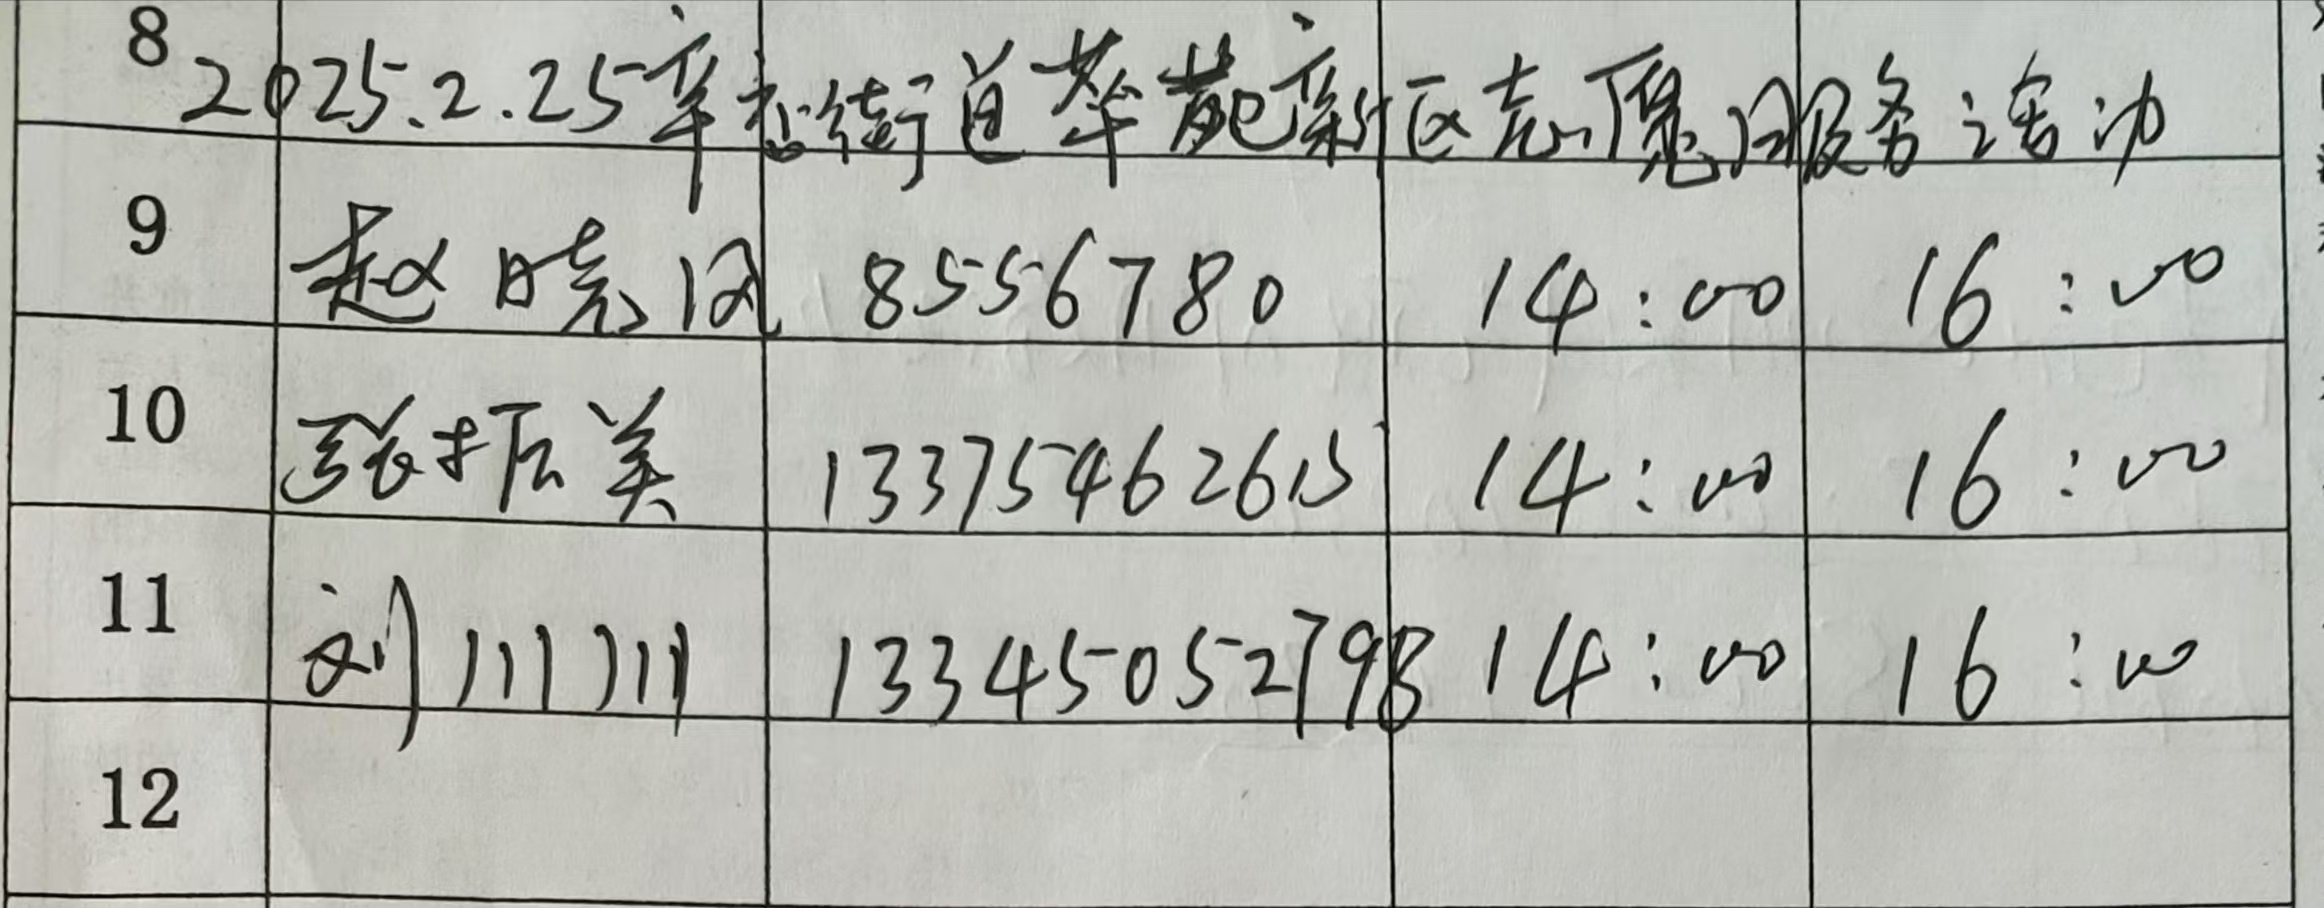 8 2025.2.25辛店街道萃苑新区志愿服务活动
9 赵晓 8556780 14:00 16:00
10 张振美 13375462615 14:00 16:00
11 刘川川 13345052798 14:00 16:00
12